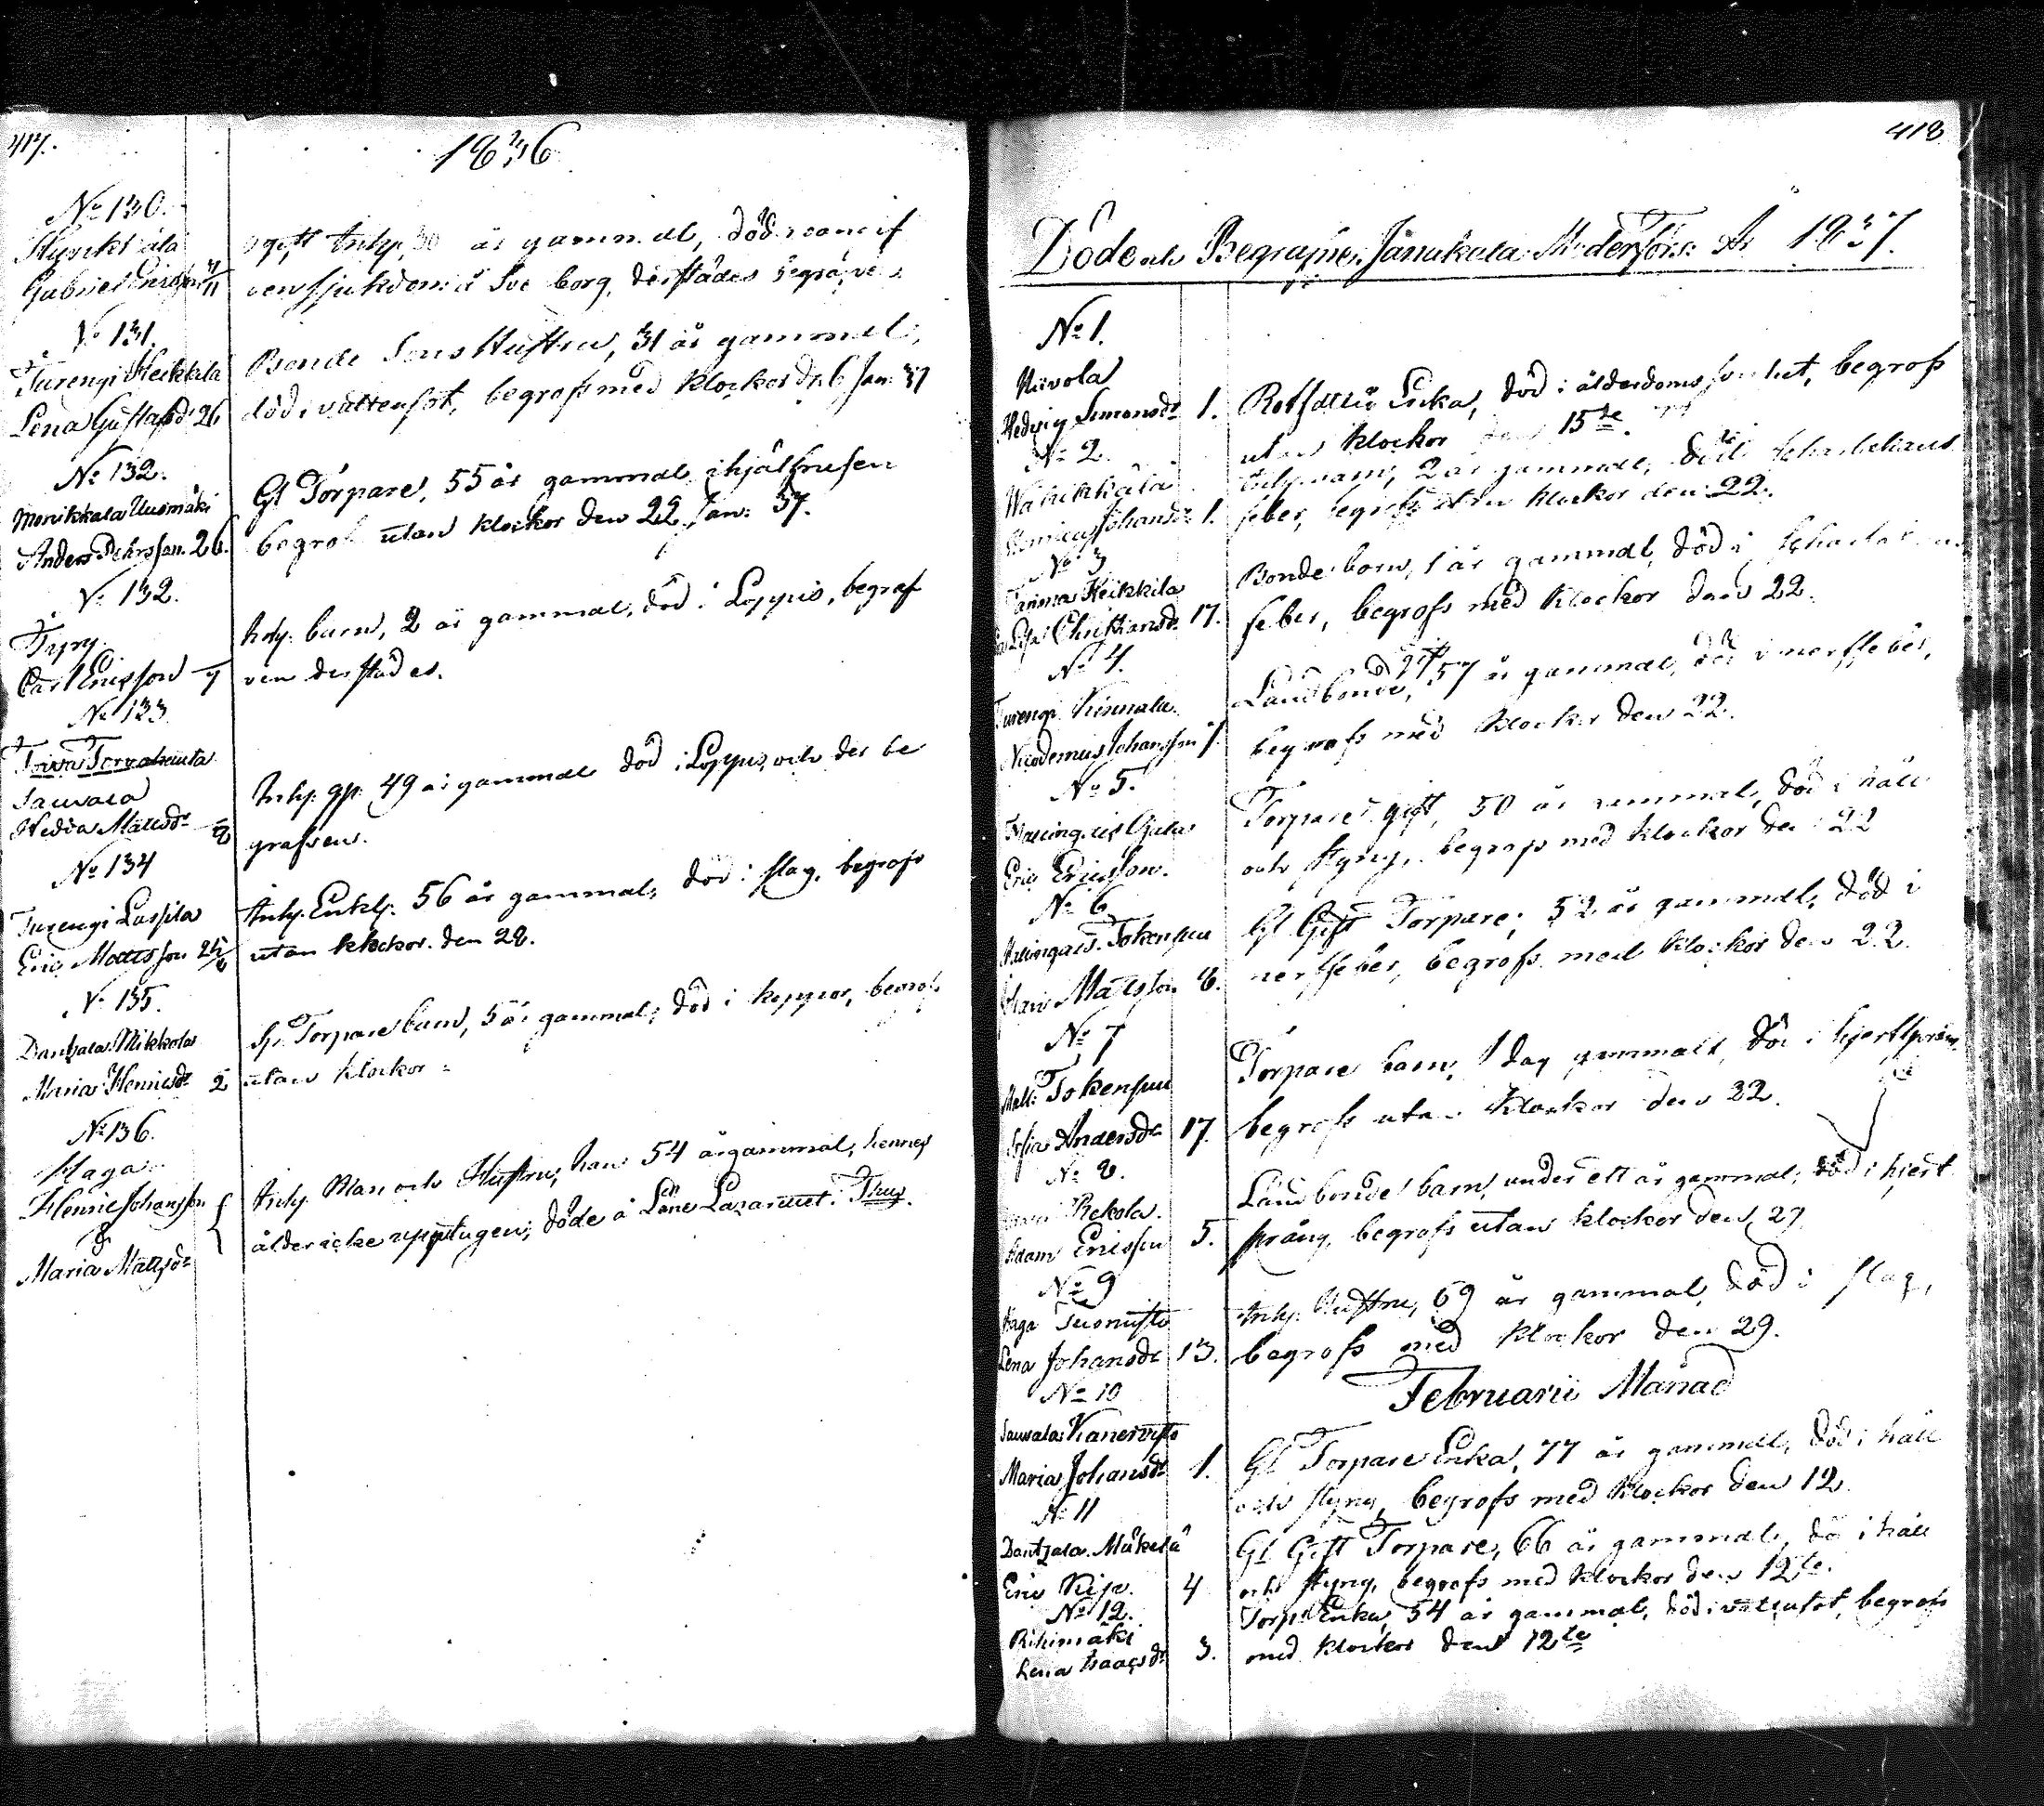 417.
1836
No 130.
Gabriel Ericsson 4/11
ogift Inhy. 30 år gammal, död
sjukdom å Sveaborg, derstädes begrafven
No 131.
Turengi Heikkilä
Lena Gustafsdr 26
Bonde Sons Hustru, 31 år gammal,
död i vattensot, begrofs med klockor d. 6 Jan: 37
No 132.
Monikkala Uusmäki
Anders Pehrsson. 26.
Gl Torpare, 55 år gammal, ihjälfrusen
begrof utan klockor den 22 Jan: 37.
No 132.
Carl Ericsson 7
Inhy. barn, 2 år gammal, död i Loppis, begraf
ven derstädes.
No 133.
Toiva Torvahauta
Sauvala
Hedda Mattsdr 8
Inhy. gp. 49 år gammal död i Loppis, och der be
grafven.
No 134
Turengi Laspila
Eric Mattsson 25/8
Inhy. Enkl: 56 år gammal, död i slag, begrofs
utan klockor. den 28.
No 135.
Dantzala Mikkola
Maria Henricsdr 2
Gl. Torpare barn, 5 år gammal, död i koppor, begrofs
utan klockor
No 136.
Haga
Henric Johansson
&
Maria Mattsdr
Inhy. Man och Hustru, han 54 år gammal, hennes
ålder icke upptagen, döde å Läne Lazarettet.
418
Döde och Begrafne i Janakkala Moderförs: År 1837.
No 1.
Niivola
Hedvig Simonsdr 1.
Enka, död i ålderdoms svaghet, begrofs
utan klockor den 15de.
No 2.
Henric Johansson 1.
Inhy. barn, 2 år gammal, död i scharlakans
feber, begrofs utan klockor den 22.
No 3
Tarinmaa Heikkilä
Christiansdr 17.
Bonde barn, 1 år gammal, död i scharlakans
feber, begrofs med klockor den 22.
No 4.
Turengi Kinnala
Nicodemus Johansson 7.
Landbonde, gift 57 år gammal, död i nerffeber,
begrofs med klockor den 22.
No 5.
Eric Ericsson.
Torpare gift, 50 år gammal, död i håll
och styng, begrofs med klockor den 22
No 6
Tokensuu
Johan Mattsson 8.
Gl. Gift Torpare, 52 år gammal, död i
nerffeber, begrofs med klockor den 22.
No 7
Tokensuu
Sofia Andersdr 17.
Torpare barn, 1 dag gammalt, död i hjertsprång
begrofs utan klockor den 22.
No 8.
Rekola.
Adam Ericsson 5.
Landbonde barn, under ett år gammal, död i hjert
språng, begrofs utan klockor den 29
No 9
Haga Tuomisto
Lena Johansdr 13.
Inhy. Hustru, 69 år gammal, död i slag,
begrofs med klockor den 29.
Februarii Månad
No 10
Sauvala Kanervisto
Maria Johansdr 1.
Gl Torpare Enka, 77 år gammal, död i håll
och styng, begrofs med klockor den 12
No 11
Dantzala. Mäkelä
Eric 4
Gl Gift Torpare, 66 år gammal, dö i håll
och styng, begrofs med klockor den 12te.
No 12.
Rihimäki
Lena Isaacsdr 3.
Torp: Enka, 54 år gammal, död i vattusot, begrofs
med klockor den 12te